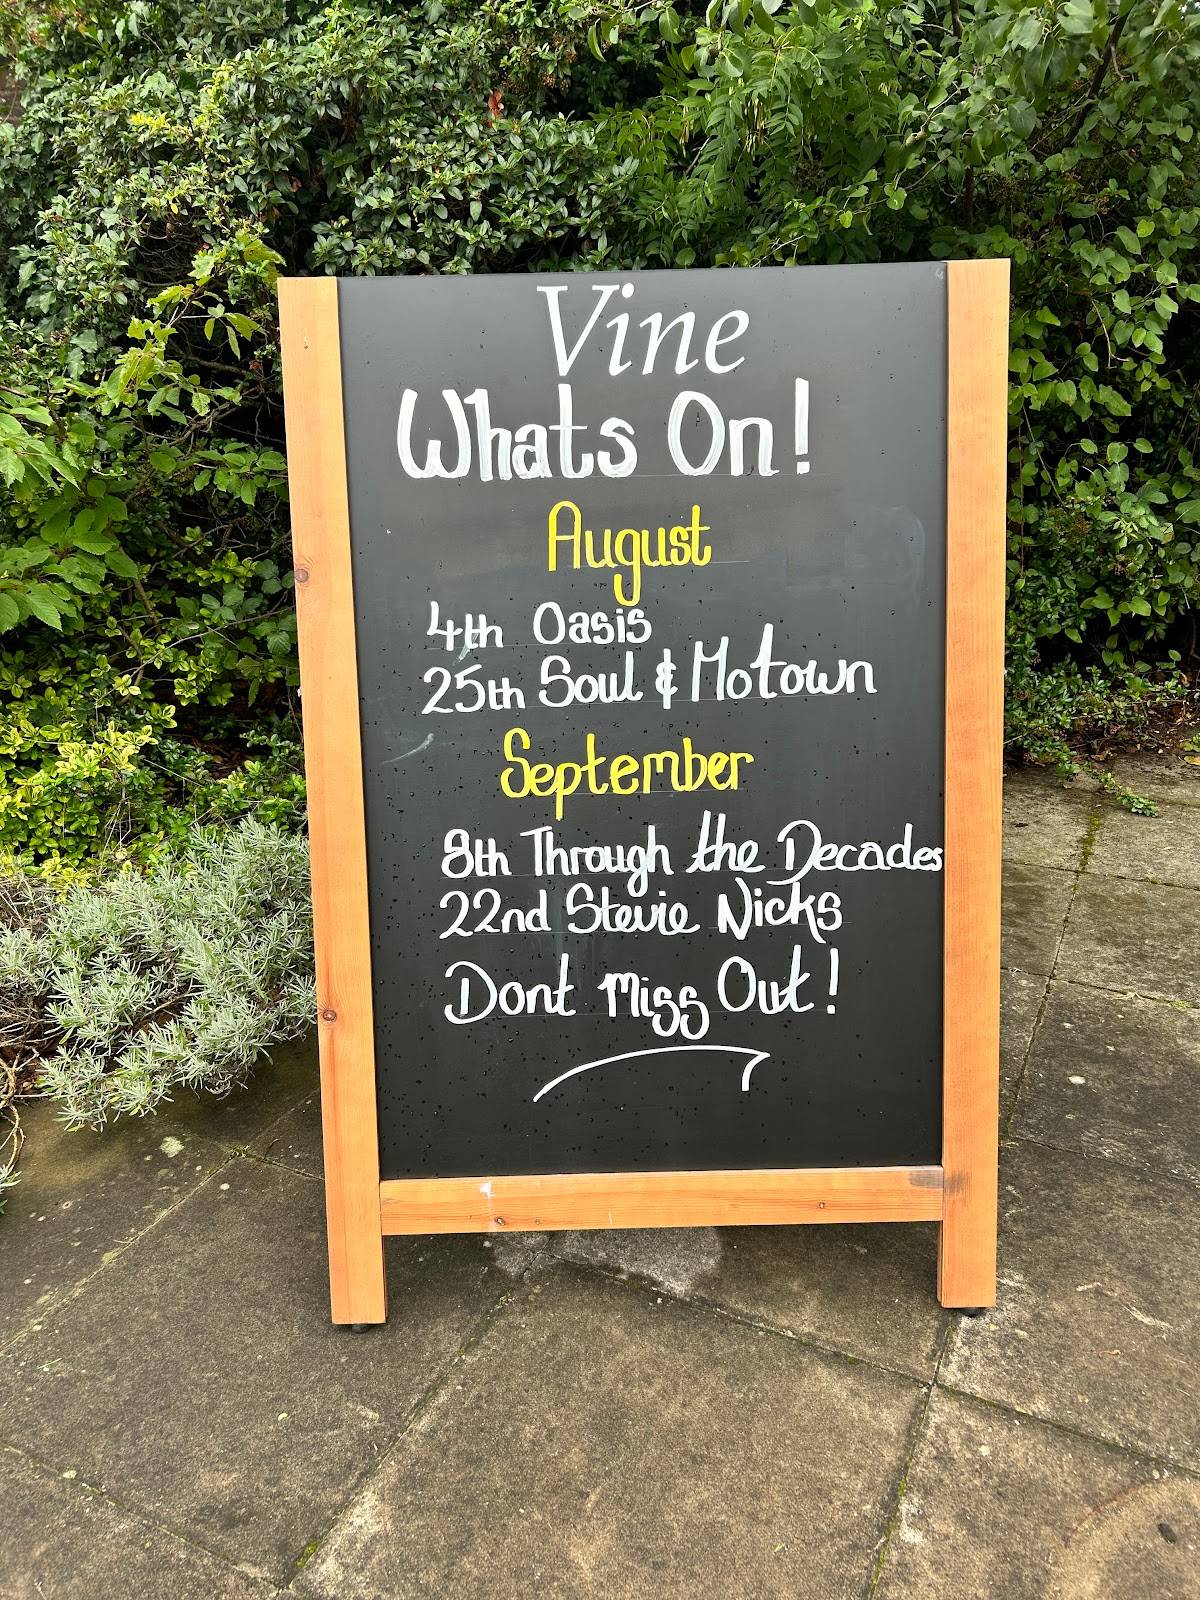 Vine
Whats On!
August
4th Oasis
25th Soul & Motown
September
8th Through the Decades
22nd Stevie Nicks
Dont Miss Out!